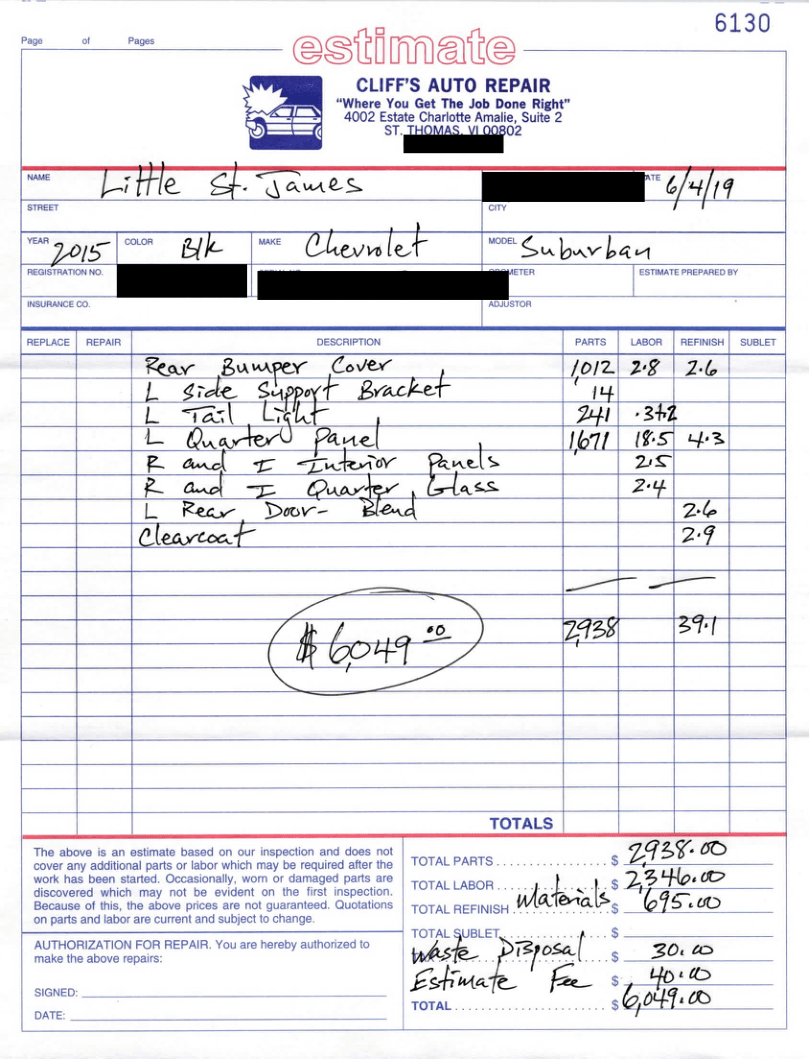 6130
Page of Pages
estimate
CLIFF'S AUTO REPAIR
"Where You Get The Job Done Right"
4002 Estate Charlotte Amalie, Suite 2
ST. THOMAS, VI 00802
NAME Little St. James ATE 6/4/19
STREET CITY
YEAR 2015 COLOR Blk MAKE Chevrolet MODEL Suburban
REGISTRATION NO. ESTIMATE PREPARED BY
INSURANCE CO. ADJUSTOR
REPLACE REPAIR DESCRIPTION PARTS LABOR REFINISH SUBLET
Rear Bumper Cover 1,012 2.8 2.6
L Side Support Bracket 14
L Tail Light 241 .3+2
L Quarter Panel 1,671 18.5 4.3
R and I Interior Panels 2.5
R and I Quarter Glass 2.4
L Rear Door- Blend 2.6
Clearcoat 2.9
$ 6,049.00 2,938 39.1
TOTALS
The above is an estimate based on our inspection and does not
cover any additional parts or labor which may be required after the
work has been started. Occasionally, worn or damaged parts are
discovered which may not be evident on the first inspection.
Because of this, the above prices are not guaranteed. Quotations
on parts and labor are current and subject to change.
AUTHORIZATION FOR REPAIR. You are hereby authorized to
make the above repairs:
SIGNED:
DATE:
TOTAL PARTS $ 2,938.00
TOTAL LABOR $ 2,346.00
TOTAL REFINISH Materials $ 695.00
TOTAL SUBLET $
Waste Disposal 30.00
Estimate Fee $ 40.00
TOTAL $ 6,049.00